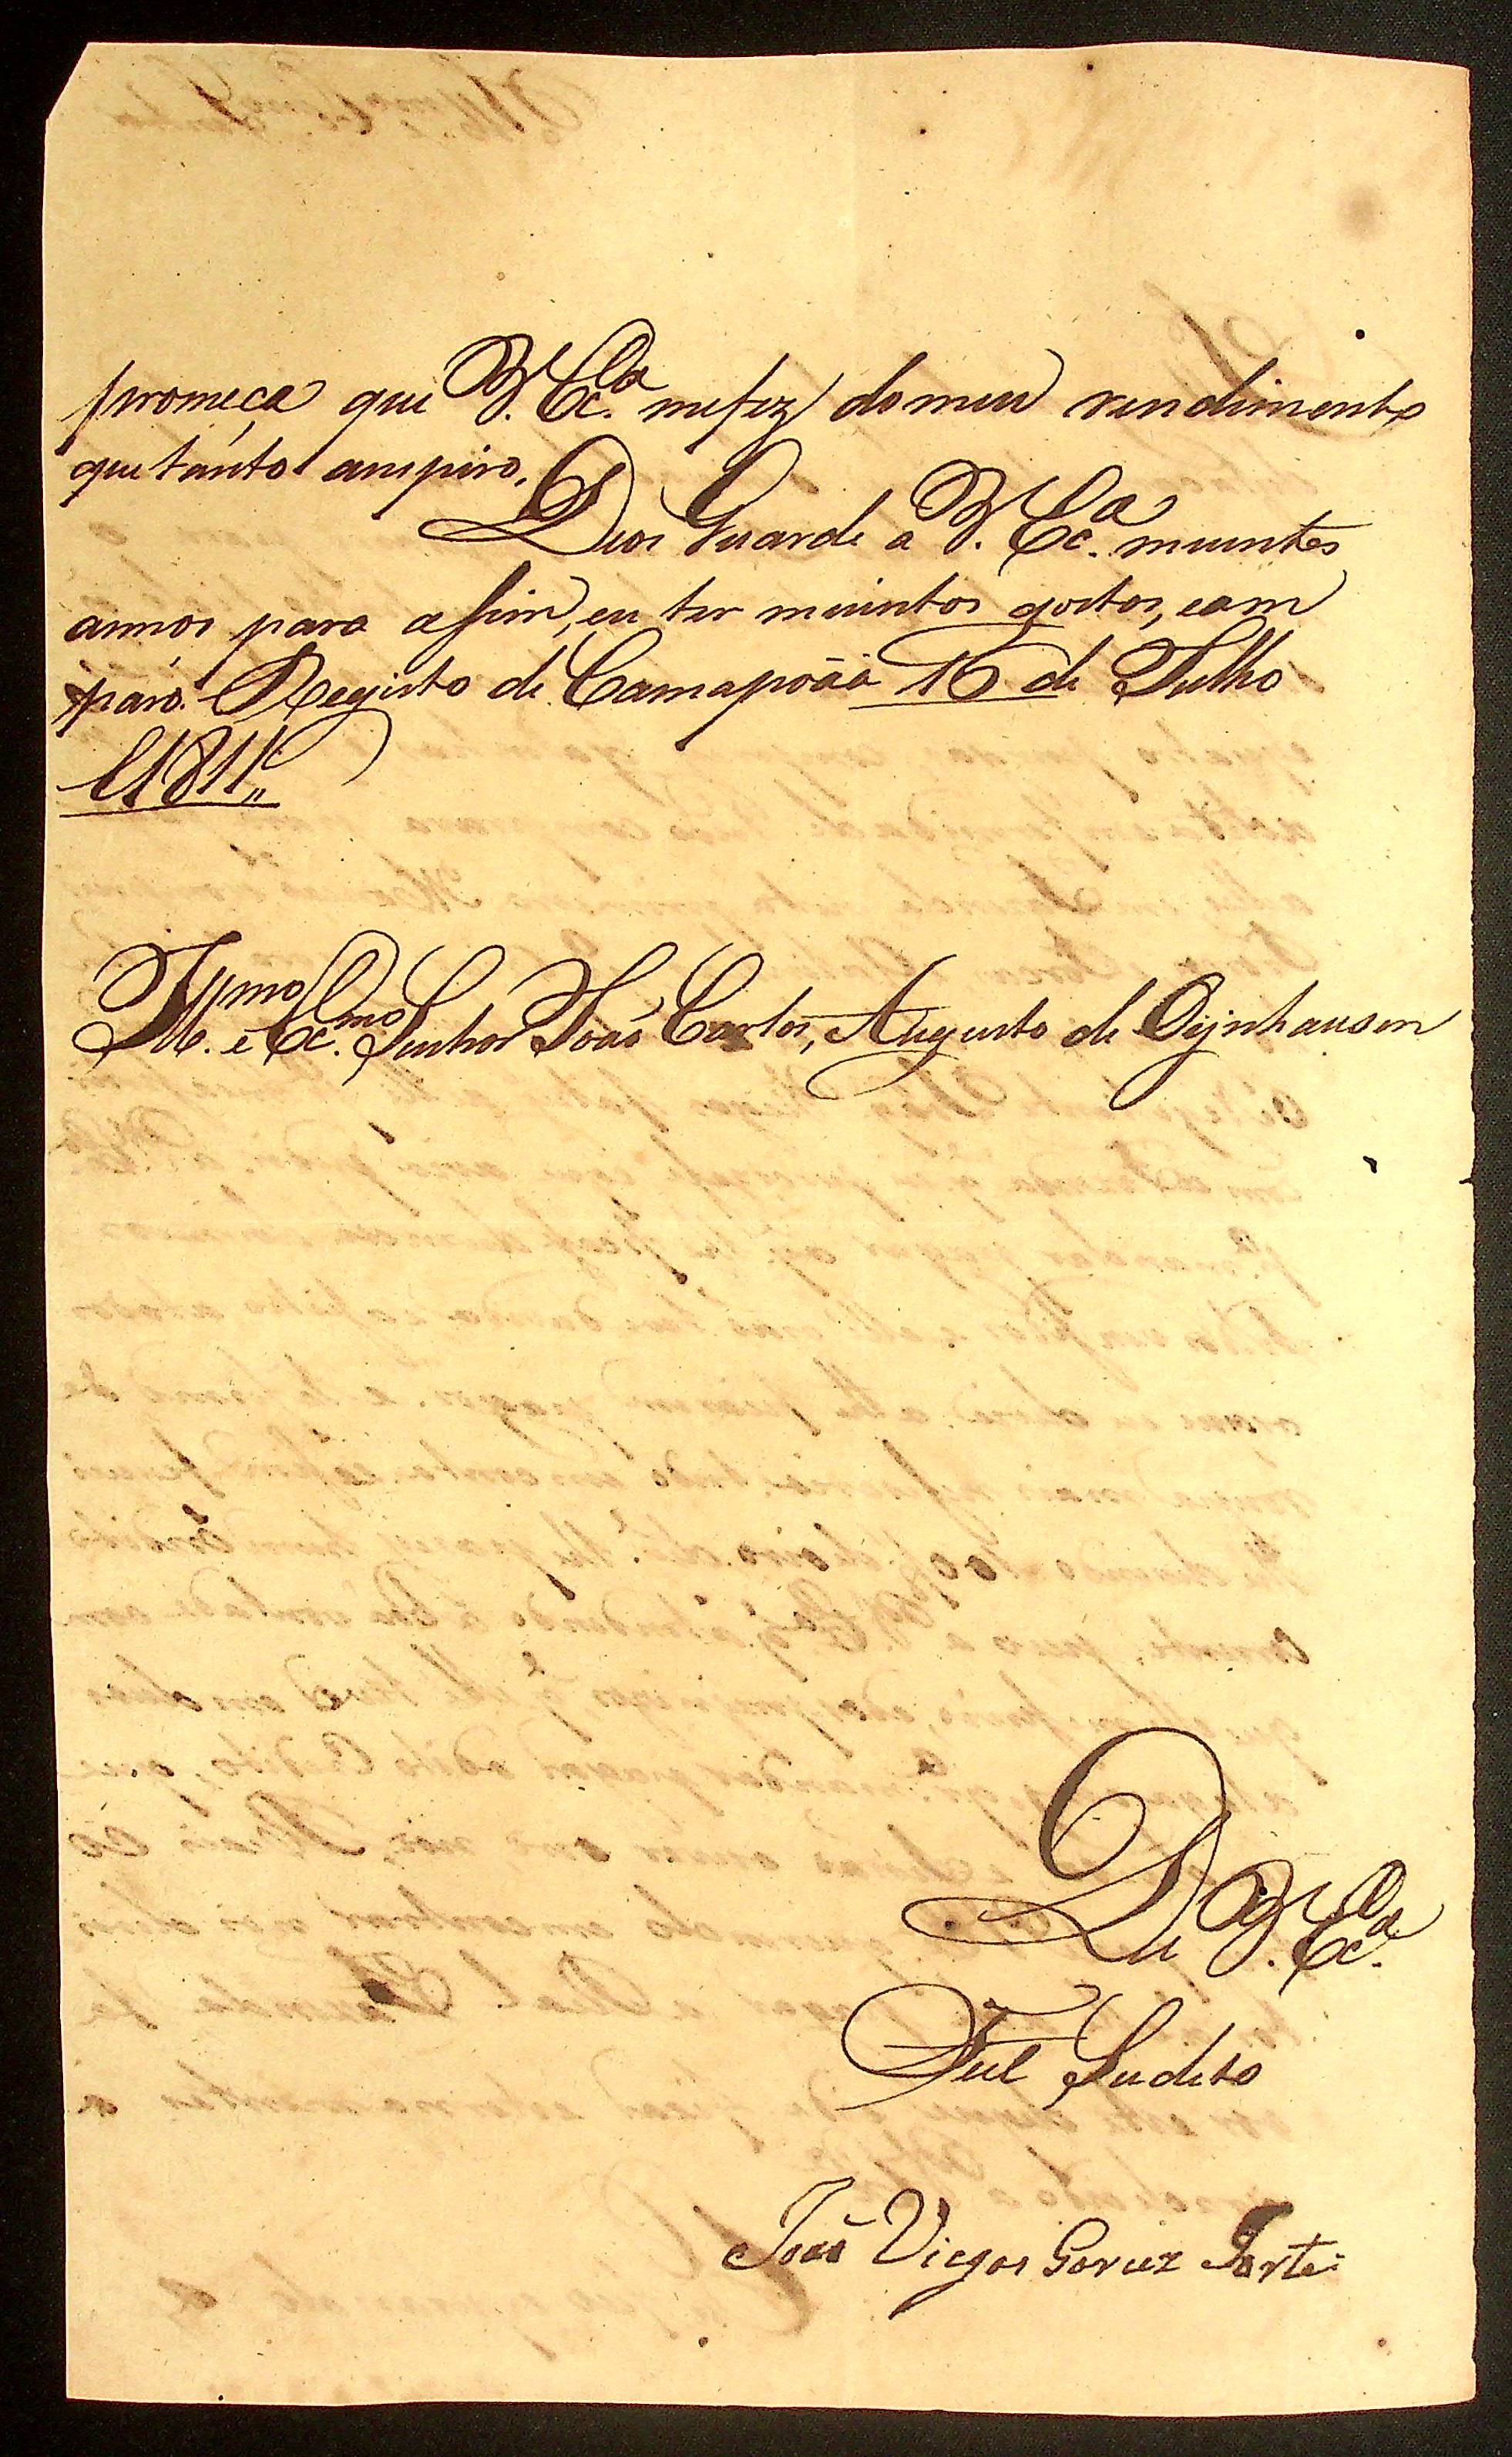 promeça que V. Ex.ª mefez domeu rendimento
que tanto anspiro,
Deos Guarde a V. Ex.ª muintos
annos para asim, eu ter muintos gostos, eam
paro. Registo de Camapoãã 16 de Julho
1811„
Ill.mo e Ex.mo Senhor João Carlos, Augusto de Oijnhausen
De V. Ex.ª
Fiel Sudito
João Viegas Forte